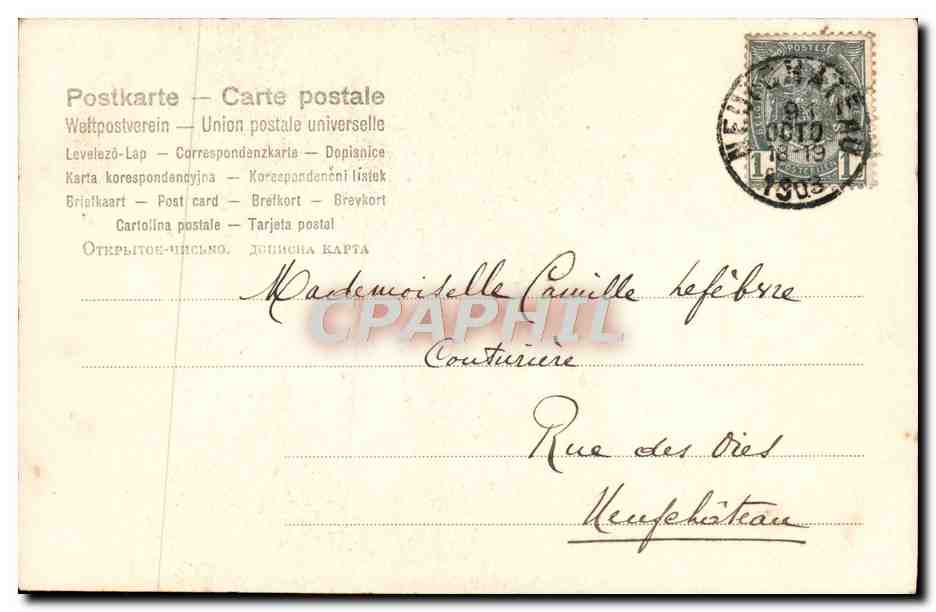 Postkarte — Carte postale
Weltpostverein — Union postale universelle
Levelező-Lap — Correspondenzkarte — Dopisnice
Karta korespondencyjna — Korespondenční lístek
Briefkaart — Post card — Brefkort — Brevkort
Cartolina postale — Tarjeta postal
Открытое-письмо. дописна карта
POSTES
NEUFCHATEAU
9
OCTO
18-19
1903
1 1
Mademoiselle Camille Lefèbvre
CPAPHIL
Couturière
Rue des Oies
Neufchâteau